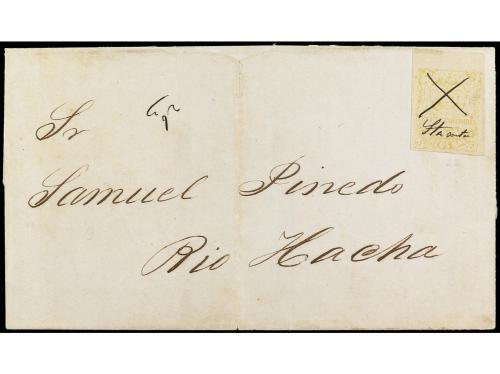 Sr
Samuel Pinedo
Rio Hacha